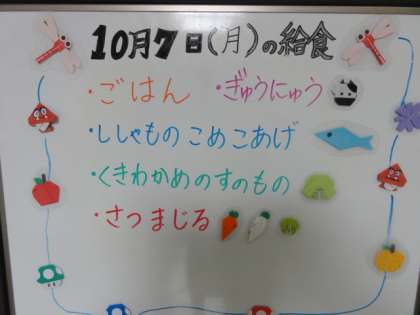 10月7日(月)の給食
・ごはん ・ぎゅうにゅう
・ししゃものこめこあげ
・くきわかめのすのもの
・さつまじる